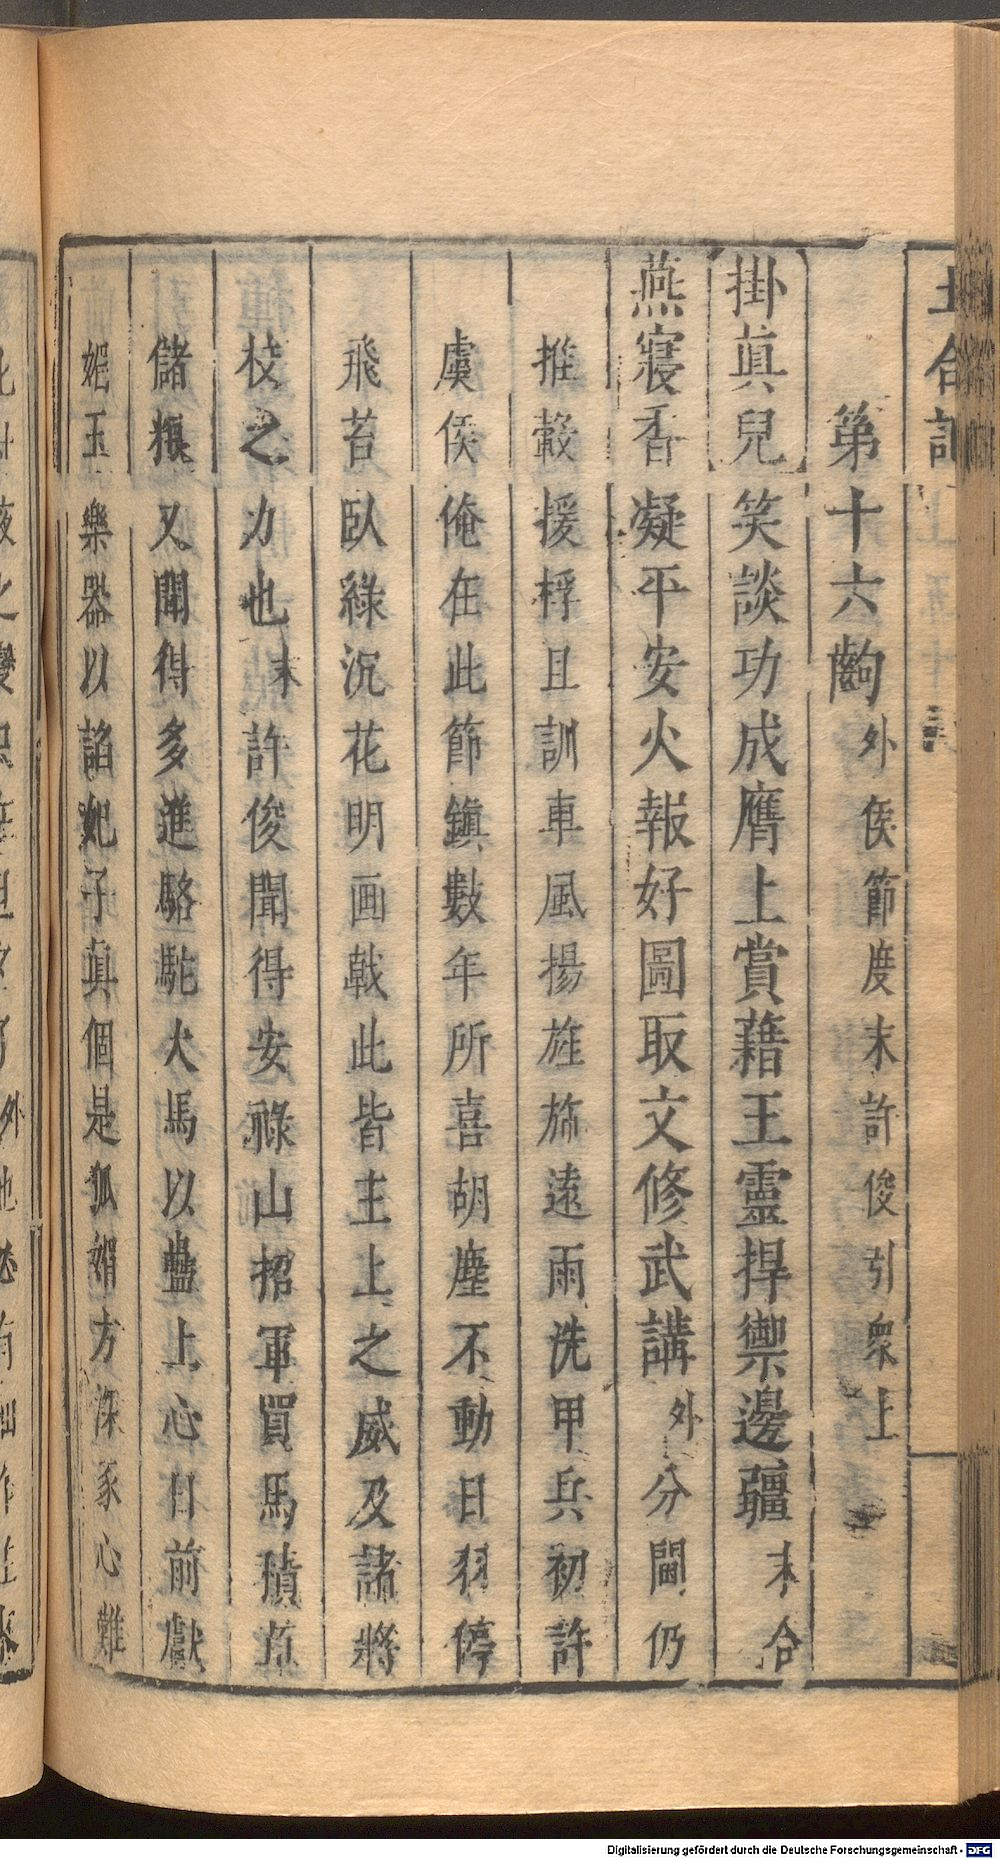 第十六齣外侯節度末許俊引衆上
掛眞兒笑談功成膺上賞藉王靈捍禦邊疆末合
燕寢香凝平安火報好圖取文修武講外分閫仍
推轂援桴且訓車風揚旌旆遠雨洗甲兵初許
虞侯俺在此節鎮數年所喜胡塵不動日羽停
飛苔臥綠沉花明画戟此皆主上之威及諸將
校之力也末許俊聞得安祿山招軍買馬積草
儲粮又聞得多進駱駝犬馬以蠱上心日前獻
樂器以諂妃子眞個是狐媚方深豕心難
Digitalisierung gefördert durch die Deutsche Forschungsgemeinschaft - DFG